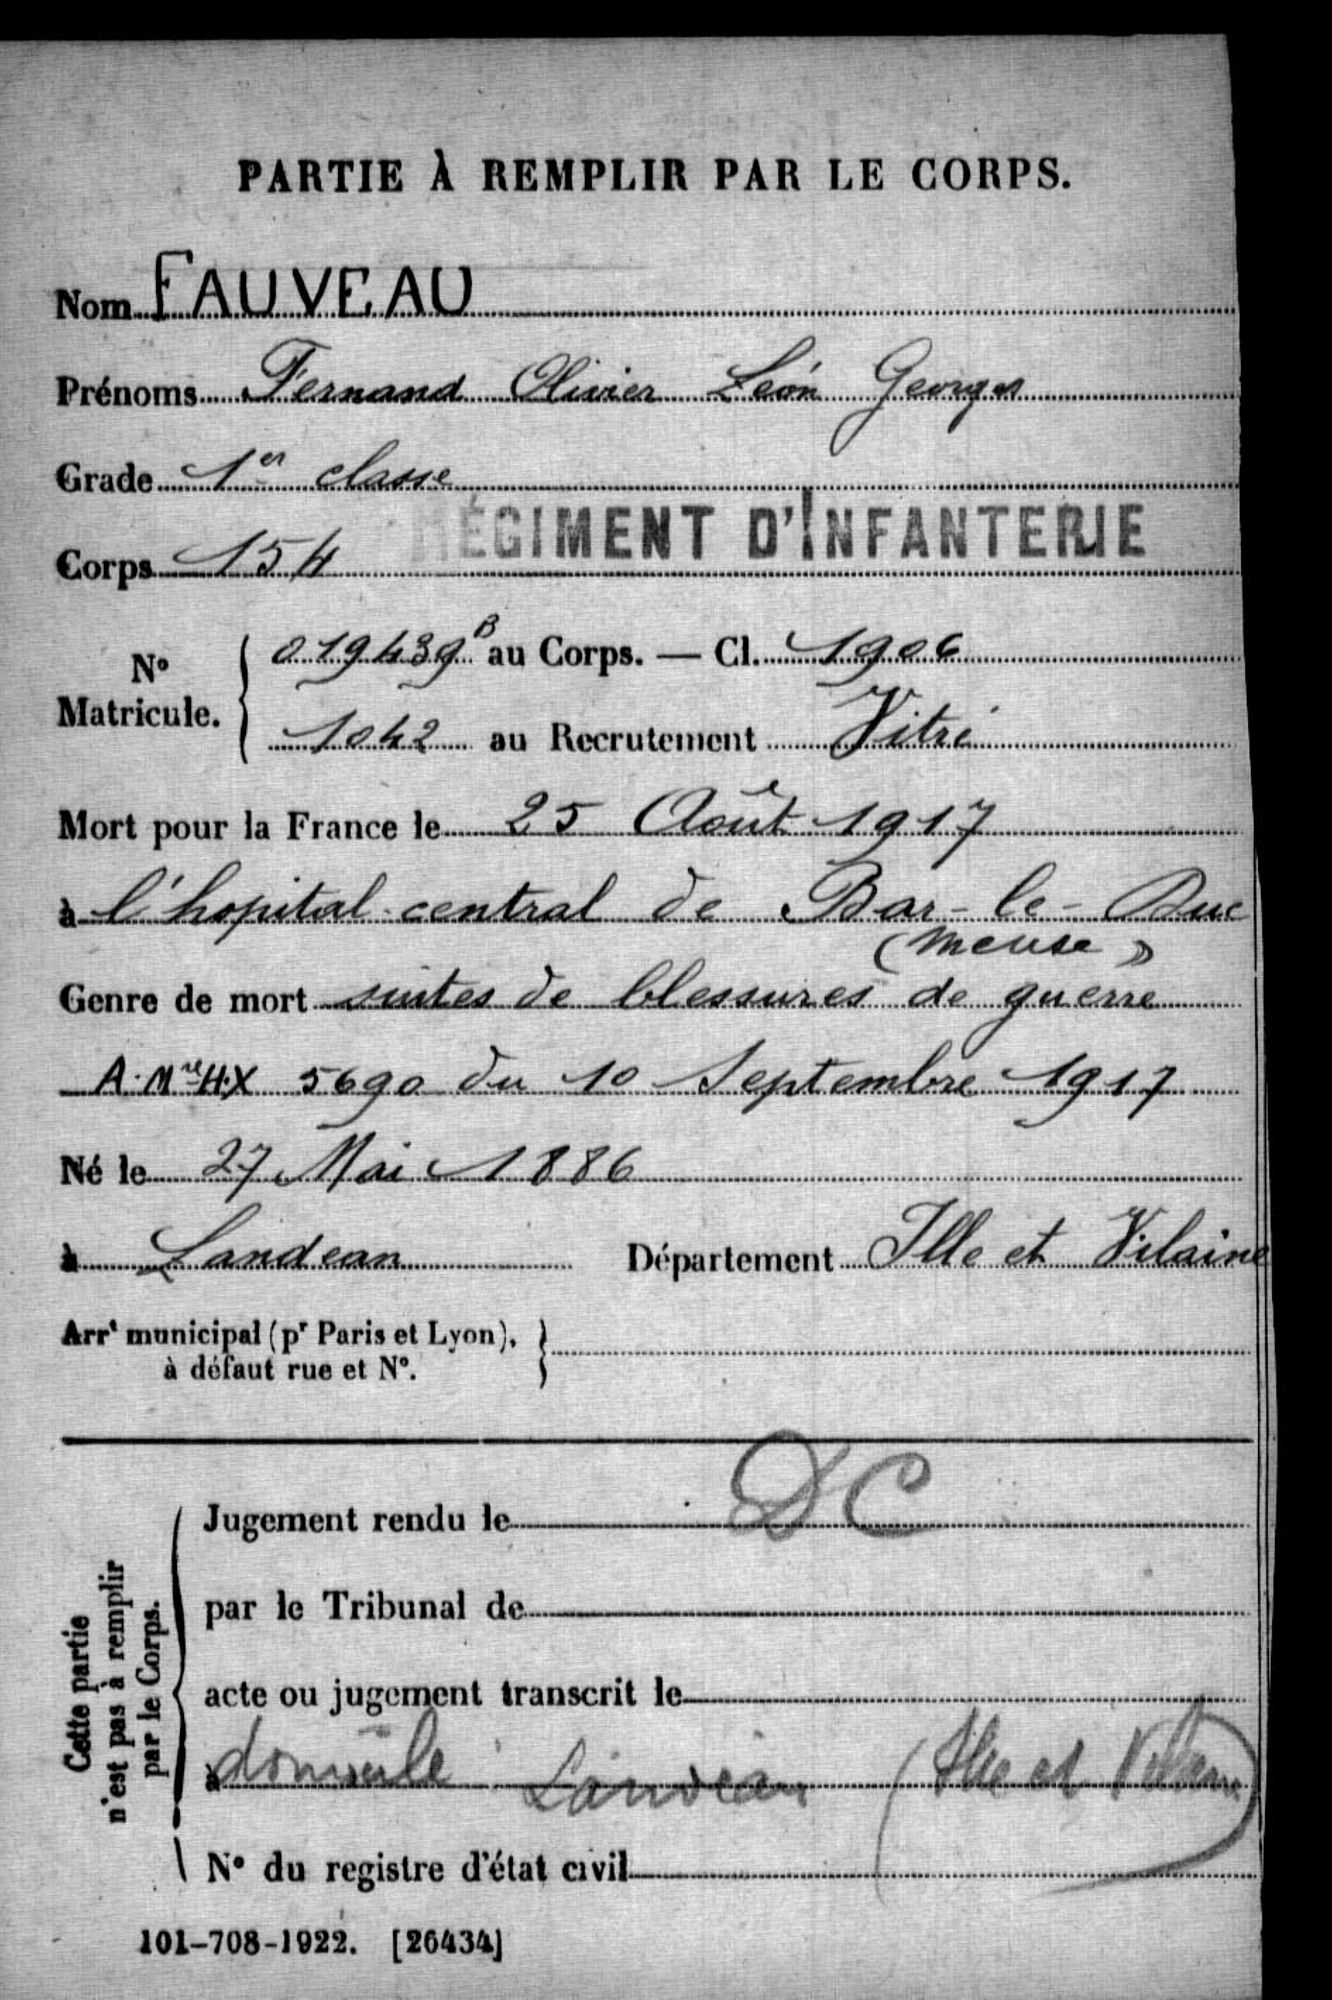 PARTIE À REMPLIR PAR LE CORPS.
Nom FAUVEAU
Prénoms Fernand Olivier Léon Georges
Grade 1er classe
Corps 154 RÉGIMENT D'INFANTERIE
N° Matricule. { 019439B au Corps. — Cl. 1906
1042 au Recrutement Vitré
Mort pour la France le 25 Août 1917
à l'hopital central de Bar-le-Duc
(Meuse)
Genre de mort suites de blessures de guerre
A. Mre H.X 5690 du 10 Septembre 1917
Né le 27 Mai 1886
à Landean Département Ille et Vilaine
Arrt municipal (pr Paris et Lyon), }
à défaut rue et N°.
DC
Cette partie n'est pas à remplir par le Corps.
Jugement rendu le
par le Tribunal de
acte ou jugement transcrit le
à domicile Landean (Ille et Vilaine)
N° du registre d'état civil
101-708-1922. [26434]